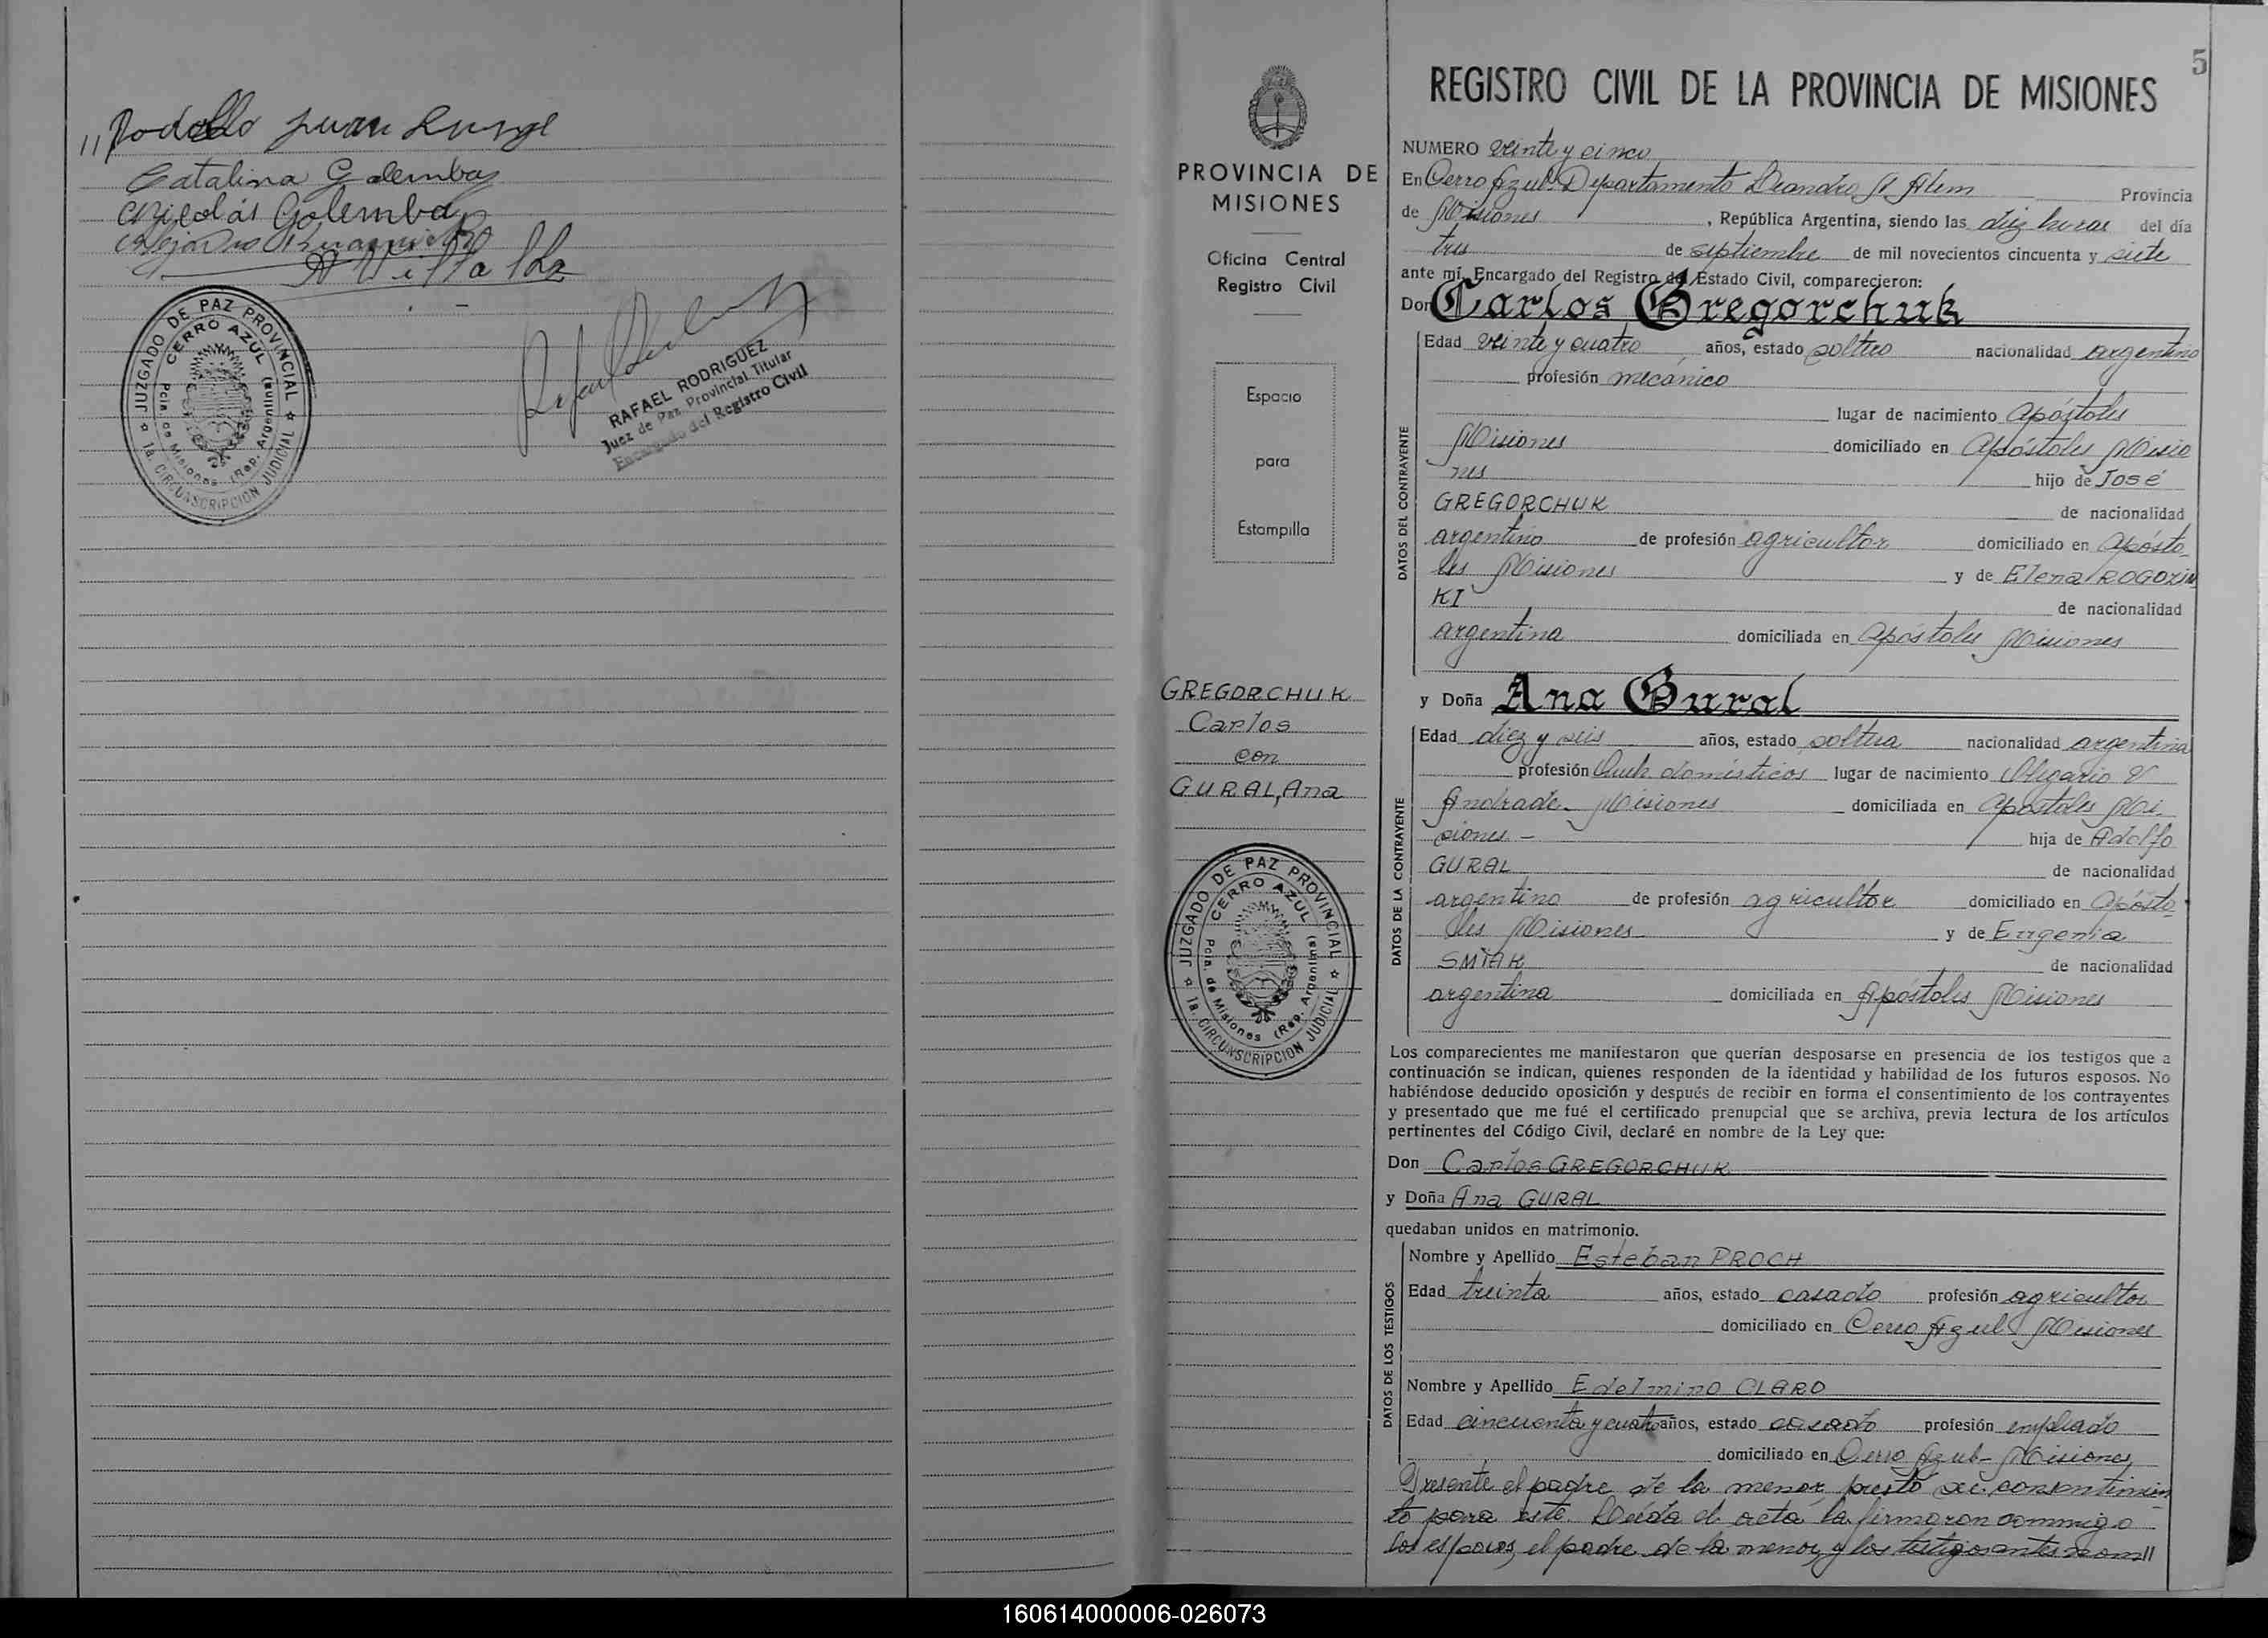 "Rodolfo Juan
Catalina Golemba
Nicolás Golemba
Villalba
JUZGADO DE PAZ PROVINCIAL
CERRO AZUL
Pcia. de Misiones (Rep. Argentina)
1a. CIRCUNSCRIPCION JUDICIAL
RAFAEL RODRIGUEZ
Juez de Paz Provincial Titular
Encargado del Registro Civil
PROVINCIA DE
MISIONES
Oficina Central
Registro Civil
Espacio
para
Estampilla
GREGORCHUK
Carlos
con
GURAL, Ana
JUZGADO DE PAZ PROVINCIAL
CERRO AZUL
Pcia. de Misiones (Rep. Argentina)
1a. CIRCUNSCRIPCION JUDICIAL
5
REGISTRO CIVIL DE LA PROVINCIA DE MISIONES
NUMERO veinte y cinco
En Cerro Azul Departamento Leandro N Alem Provincia
de Misiones, República Argentina, siendo las diez horas del día
tres de septiembre de mil novecientos cincuenta y siete
ante mí, Encargado del Registro del Estado Civil, comparecieron:
Don Carlos Gregorchuk
DATOS DEL CONTRAYENTE
Edad veinte y cuatro años, estado soltero nacionalidad argentino
profesión mecánico
lugar de nacimiento Apóstoles
Misiones domiciliado en Apóstoles Misio
nes hijo de José
GREGORCHUK de nacionalidad
argentino de profesión agricultor domiciliado en Apósto
les Misiones y de Elena ROGOZIN
KI de nacionalidad
argentina domiciliada en Apóstoles Misiones
y Doña Ana Gural
DATOS DE LA CONTRAYENTE
Edad diez y seis años, estado soltera nacionalidad argentina
profesión Queh. domésticos lugar de nacimiento Olegario V
Andrade - Misiones domiciliada en Apóstoles Mi-
siones - hija de Adolfo
GURAL de nacionalidad
argentino de profesión agricultor domiciliado en Apósto
les Misiones y de Eugenia
SMIAK de nacionalidad
argentina domiciliada en Apóstoles Misiones
Los comparecientes me manifestaron que querían desposarse en presencia de los testigos que a
continuación se indican, quienes responden de la identidad y habilidad de los futuros esposos. No
habiéndose deducido oposición y después de recibir en forma el consentimiento de los contrayentes
y presentado que me fué el certificado prenupcial que se archiva, previa lectura de los artículos
pertinentes del Código Civil, declaré en nombre de la Ley que:
Don Carlos GREGORCHUK
y Doña Ana GURAL
quedaban unidos en matrimonio.
DATOS DE LOS TESTIGOS
Nombre y Apellido Esteban PROCH
Edad treinta años, estado casado profesión agricultor
domiciliado en Cerro Azul Misiones
Nombre y Apellido Edelmino CLARO
Edad cincuenta y cuatro años, estado casado profesión empleado
domiciliado en Cerro Azul - Misiones
Presente el padre de la menor prestó su consentimien
to para este. Leída el acta la firmaron conmigo
los esposos, el padre de la menor y los testigos antes nom//
160614000006-026073